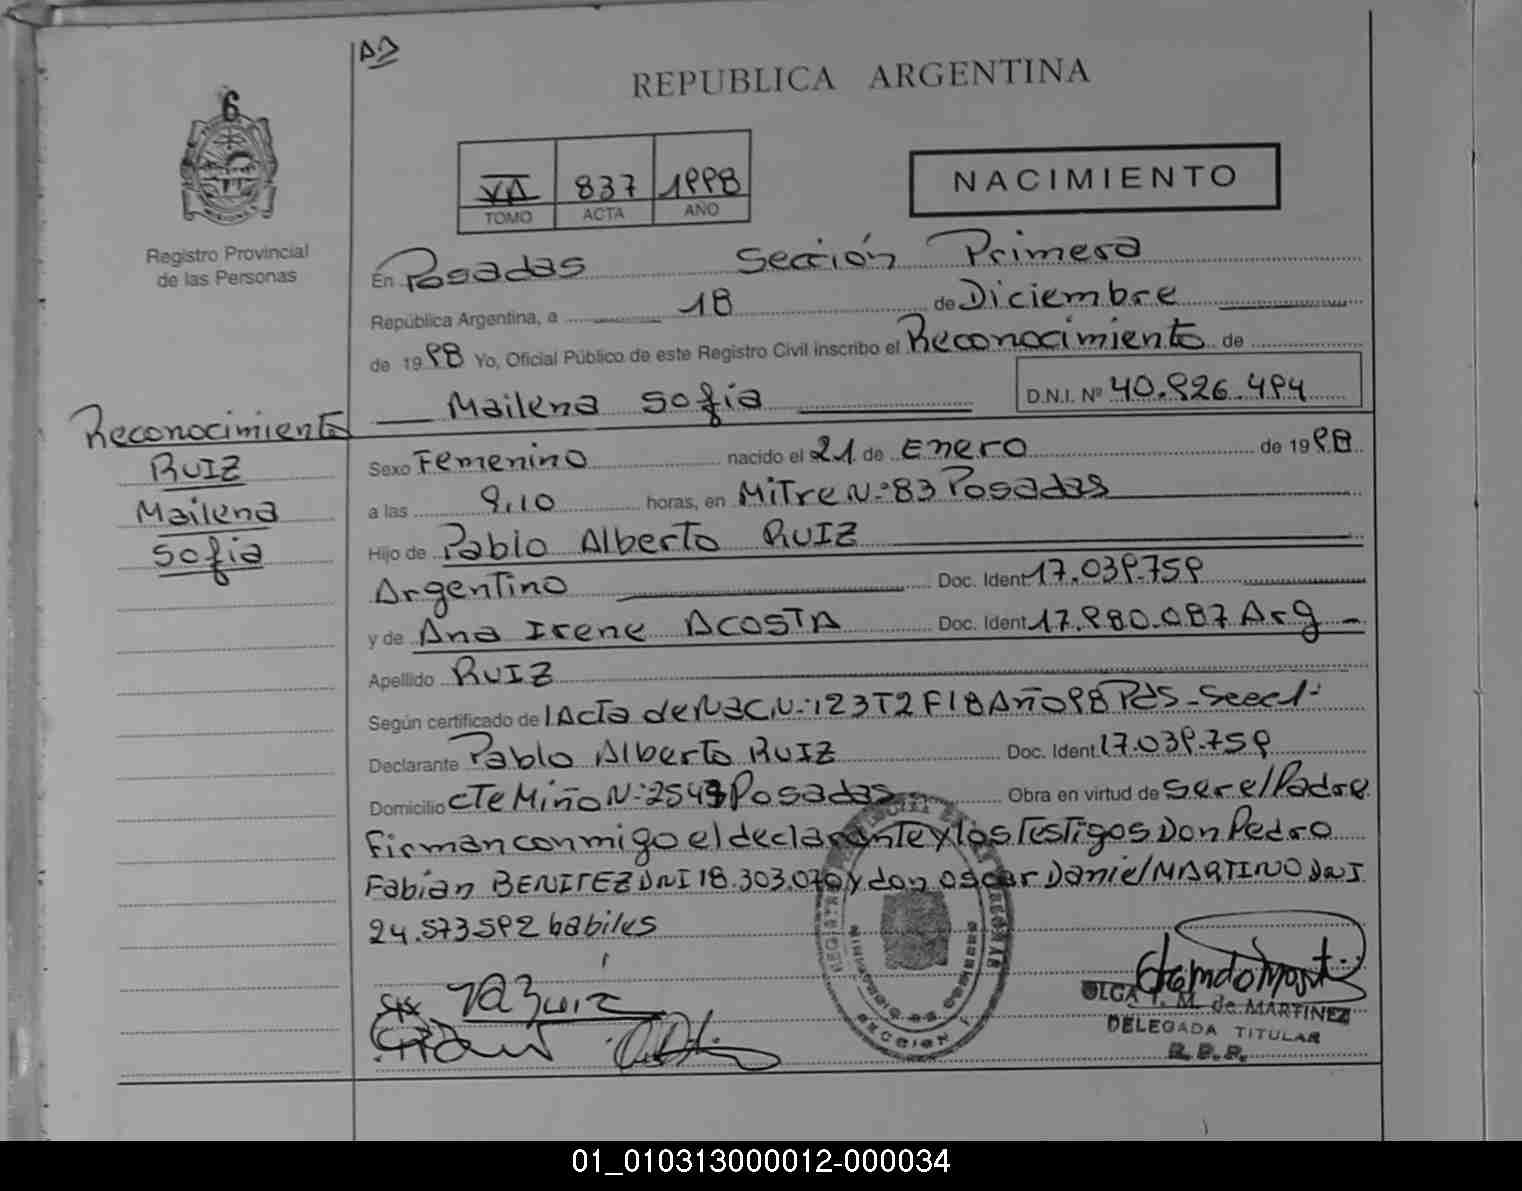 6
REPUBLICA ARGENTINA
837 1998
TOMO ACTA AÑO
NACIMIENTO
Registro Provincial
de las Personas
En Posadas Sección Primera
República Argentina, a 18 de Diciembre
de 1998 Yo, Oficial Público de este Registro Civil inscribo el Reconocimiento de
Mailena Sofia D.N.I. Nº 40.926.494
Reconocimiento
RUIZ
Mailena
Sofia
Sexo Femenino nacido el 21 de Enero de 1998
a las 9,10 horas, en Mitre N:º 83 Posadas
Hijo de Pablo Alberto RUIZ
Argentino Doc. Ident 17.039.759
y de Ana Irene ACOSTA Doc. Ident 17.980.087 Arg
Apellido RUIZ
Según certificado de Acta de Nac N: 123 T2 F18 Año 98 Pds-
Declarante Pablo Alberto RUIZ Doc. Ident. 17.039.759
Domicilio Cte Miño N: Posadas Obra en virtud de ser el Padre
Firman conmigo el declarante y los Testigos Don Pedro
Fabián BENITEZ DNI 18.303.070 y don Oscar Daniel MARTINO DNI
24.573.592 habiles
OLGA T. M. de MARTINEZ
DELEGADA TITULAR
R. P. P.
01_010313000012-000034